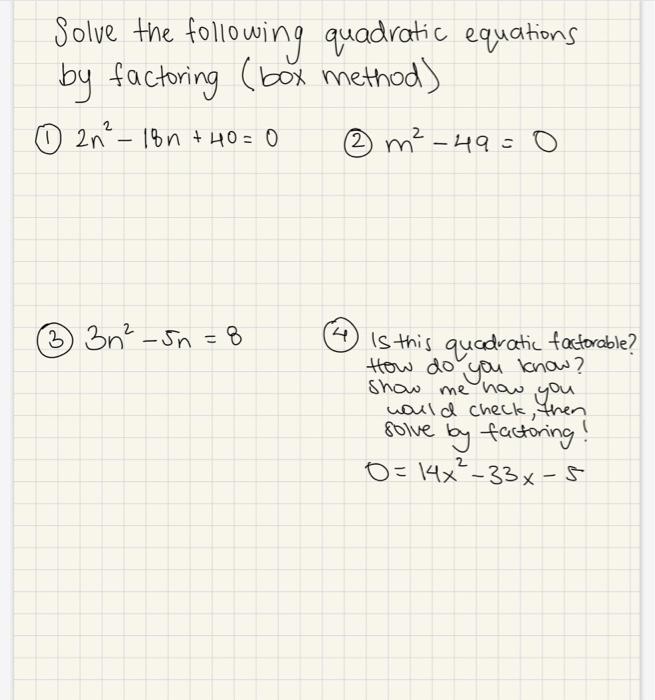 Solve the following quadratic equations
by factoring (box method)
① 2n² - 18n + 40 = 0
② m² - 49 = 0
③ 3n² - 5n = 8
④ Is this quadratic factorable?
How do you know?
Show me how you
would check, then
solve by factoring!
0 = 14x² - 33x - 5